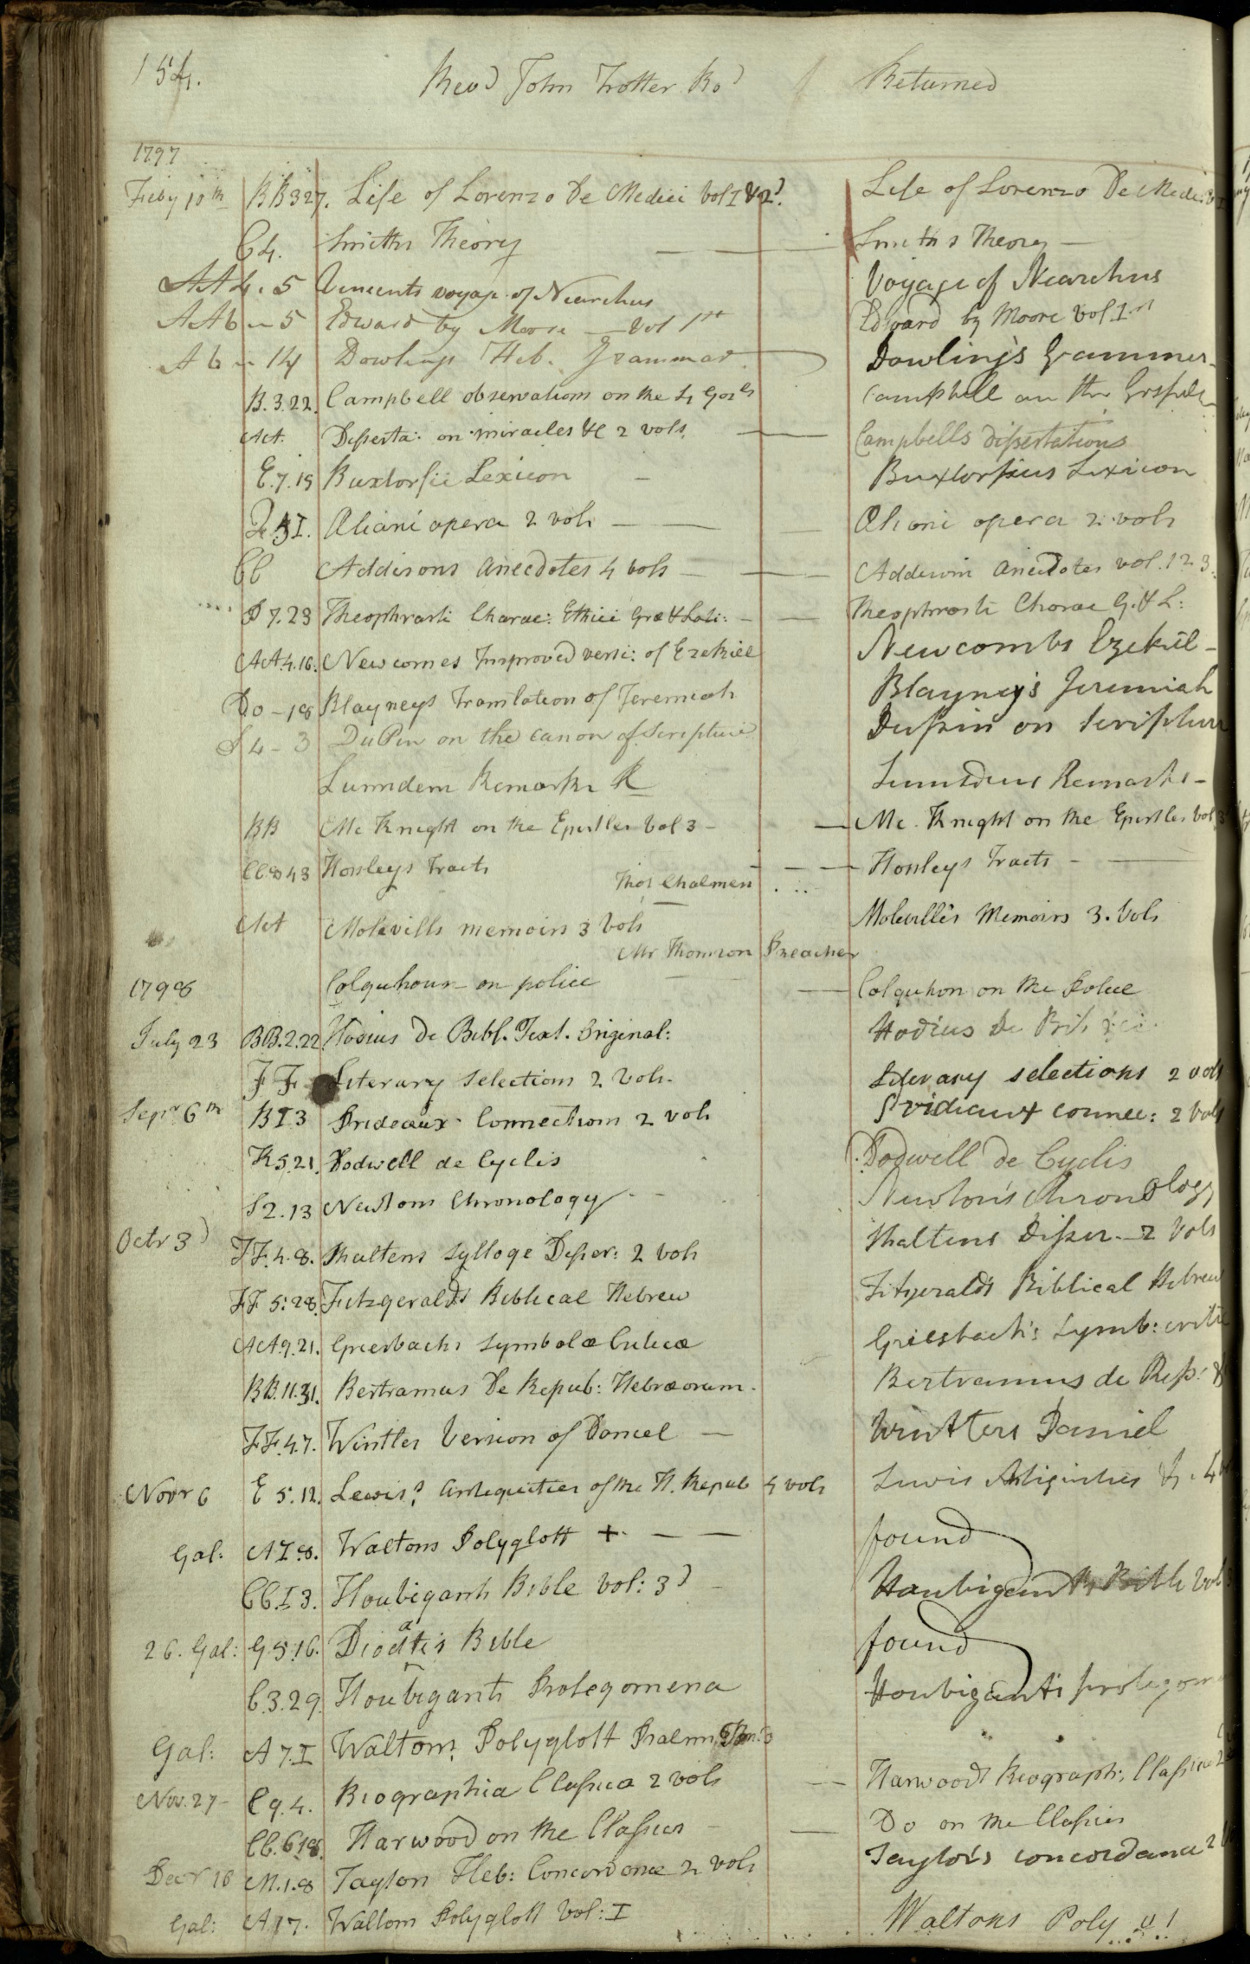 154. Revd John Trotter Rod Returned
1797
Feby 10th BB327. Life of Lorenzo De Medici Vol I & 2d. Life of Lorenzo De Medici
C4. Smiths Theory — — Smiths Theory —
AA4.5 Vincents voyage of Nearchus Voyage of Nearchus
AA6 — 5 Edward by Moore — Vol 1st Edward by Moore Vol 1st
A6 — 14 Dowlings Heb. Grammar Dowling's Grammer
B.3.22. Campbell observations on the 4 Gosls Campbell on the Gospels
AA. Disserta: on miracles &c 2 vols — Campbells dissertations
E.7.19 Buxtorfii Lexicon — Buxtorfius Lexicon
Æliani opera 2 vols — — Æliani opera 2 vols
CC Addisons Anecdotes 4 vols — — Addisons Anecdotes vol. 1 2 3.
P7.23 Theophrasti Charac: Ethici Græ & Lati: — — Theophrasti Charac G. & L:
AA4.16. Newcomes Improved versi: of Ezekiel Newcombs Ezekiel —
Do — 18 Blayneys Translation of Jeremiah Blayney's Jeremiah
S4 — 3 DuPin on the Canon of Scripture Dupin on Scripture
Lumsdens Remarks R Lumsdens Remarks —
BB Mc Knight on the Epistles Vol 3 — — Mc. Knight on the Epistles Vol 3
CC843 Horsleys Tracts — — — Horsleys Tracts — —
Thos Chalmers
AA Molevills memoirs 3 Vols Moleville's Memoirs 3. Vols
Mr Thomson Preacher
1798 Colquhoun on police — Colquhon on the Police
July 23 BB.2.22 Hodius De Bibl. Text. Original: Hodius De
FF Literary Selections 2 Vols. Literary selections 2 vols
Sepr 6th BI3 Prideaux Connections 2 vols Pridieaux connec: 2 Vols
K5.21. Dodwell de Cyclis Dodwell de Cyclis
S2.13 Newtons Chronology Newton's Chronology
Octr 3d FF.4.8. Shultens Sylloge Disser: 2 vols Shaltens Disser. — 2 Vols
FF 5:28. Fitzgeralds Biblical Hebrew Fitzgerald's Biblical Hebrew
AA.9.21. Griesbachs Symbolæ Criticæ Griesbach's Symb: criti
BB.11.31. Bertramus De Repub: Hebræorum. Bertramus de Rep:
FF.4.7. Wintles Version of Daniel — Wintters Daniel
Novr 6 E 5.12. Lewis's Antequities of the H. Repub 4 vols Lewis Antiquities
Gal: A I.8. Waltons Polyglott + — — found
CCI3. Houbigants Bible Vol: 3d — Houbigants Bible Vol
26. Gal: G.5.16. Diodatis Bible found
C.3.29. Houbigants Prolegomena Houbigants prolegom
Gal: A 7.I Waltons Polyglott Psalms
Nov. 27 — C9.4. Biographia Classica 2 vols — Harwoods Biograph: Classica 2
CC.618. Harwood on the Classics — Do on the Classics
Decr 18 M.1.8 Taylors Heb: Concordance 2 vols Taylor's concordance 2
Gal: A17. Waltons Polyglott Vol: I Waltons Poly